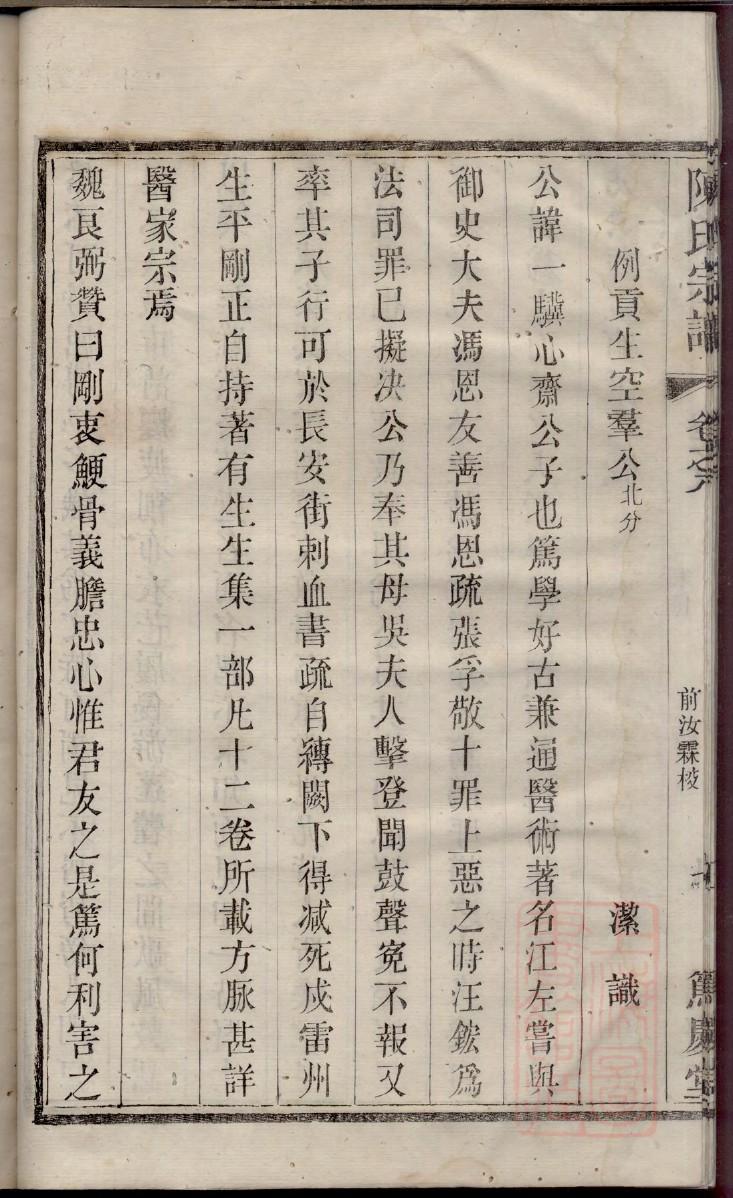 陳氏宗譜 卷之六 前汝霖梭 篤慶堂
例貢生空羣公北分 潔識
公諱一驥心齋公子也篤學好古兼通醫術著名江左嘗與
御史大夫馮恩友善馮恩疏張孚敬十罪上惡之時汪鋐爲
法司罪已擬决公乃奉其母吳夫人擊登聞鼓聲寃不報又
率其子行可於長安街刺血書疏自縳闕下得减死戍雷州
生平剛正自持著有生生集一部凡十二卷所載方脉甚詳
醫家宗焉
魏良弼贊曰剛衷鯁骨義膽忠心惟君友之是篤何利害之